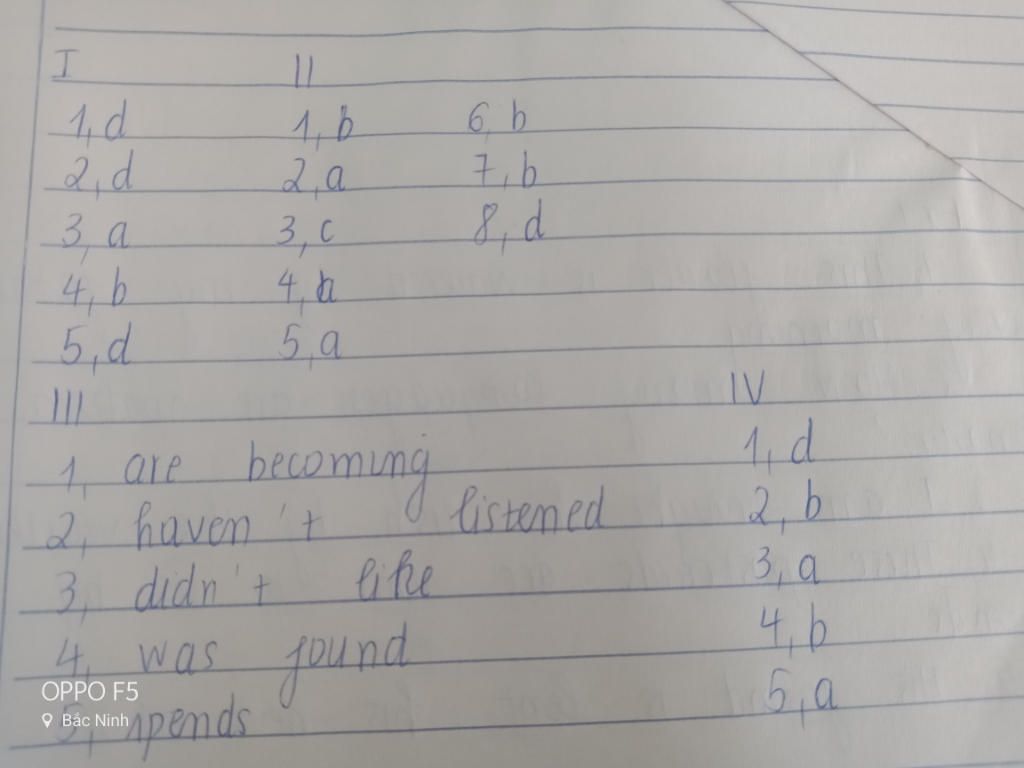 I II
1, d 1, b 6, b
2, d 2, a 7, b
3, a 3, c 8, d
4, b 4,
5, d 5, a
III IV
1, are becoming 1, d
2, haven't listened 2, b
3, didn't like 3, a
4, was found 4, b
5, spends 5, a
OPPO F5
Bắc Ninh